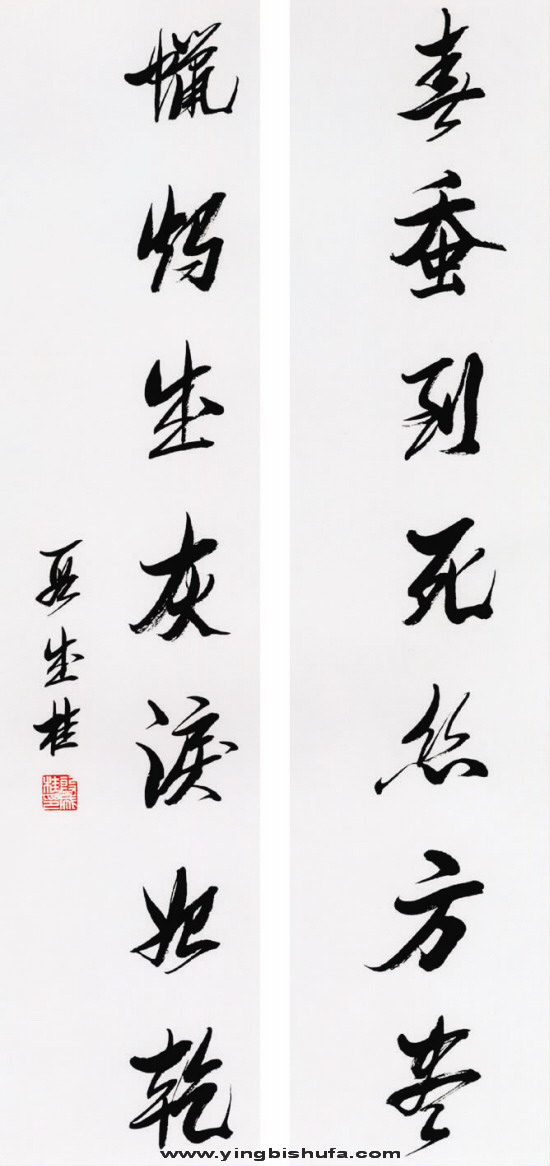 春蚕到死丝方尽
蠟燭成灰淚始乾
殷成桂
www.yingbishufa.com